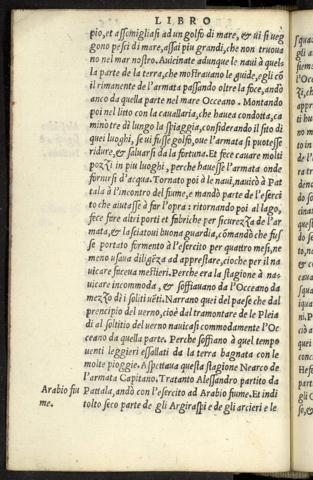 LIBRO
pio, et assomigliasi ad un golfo di mare, & ui si ueg
gono pesci di mare, assai piu grandi, che non truoua
no nel mar nostro. Auicinate adunque le naui à quel
la parte de la terra, che mostrauano le guide, egli cō
il rimanente de l'armata passando oltre la foce, andò
anco da quella parte nel mare Oceano. Montando
poi nel litto con la cauallaria, che hauea condotta, ca
minò tre dì lungo la spiaggia, considerando il sito di
quei luoghi, se ui fusse golfo, oue l'armata si puotesse
ridure, & saluarsi da la fortuna. Et fece cauare molti
pozzi in piu luoghi, perche hauesse l'armata onde
fornirsi d'acqua. Tornato poi à le naui, nauicò à Pat
tala à l'incontro del fiume, e mandò parte de l'eserci
to che aiutasse à far l'opra: ritornando poi al lago,
fece fare altri porti et fabriche per sicurezza de l'ar
mata, & lasciatoui buona guardia, comandò che fus
se portato formento à l'esercito per quattro mesi, ne
meno usaua diligēza ad apprestare, cioche per il na
uicare faceua mestieri. Perche era la stagione à na-
uicare incommoda, & soffiauano da l'Oceano da
mezzo dì i soliti uēti. Narrano quei del paese che dal
principio del uerno, cioè dal tramontare de le Pleia
di al solstitio del uerno nauicasi commodamente l'Oc
ceano da quella parte. Perche soffiano à quel tempo
uenti leggieri essallati da la terra bagnata con le
molte pioggie. Aspettaua questa stagione Nearco de
l'armata Capitano. Tratanto Alessandro partito da
Arabio fiu Pattala, andò con l'esercito ad Arabio fiume. Et indi
me. tolto seco parte de gli Argiraspi e de gli arcieri e le